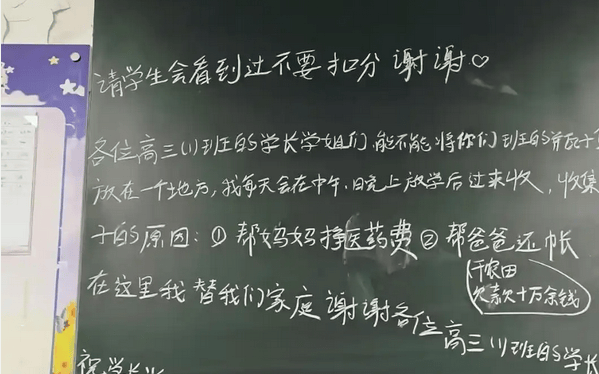 请学生会看到过不要扣分 谢谢♡
各位高三(1)班的学长学姐们,能不能将你们班的瓶子
放在一个地方,我每天会在中午、晚上放学后过来收,收集
子的原因:①帮妈妈挣医药费②帮爸爸还帐
干农田
欠款十万余钱
在这里我替我们家庭谢谢各位高三(1)班的学长
祝学长